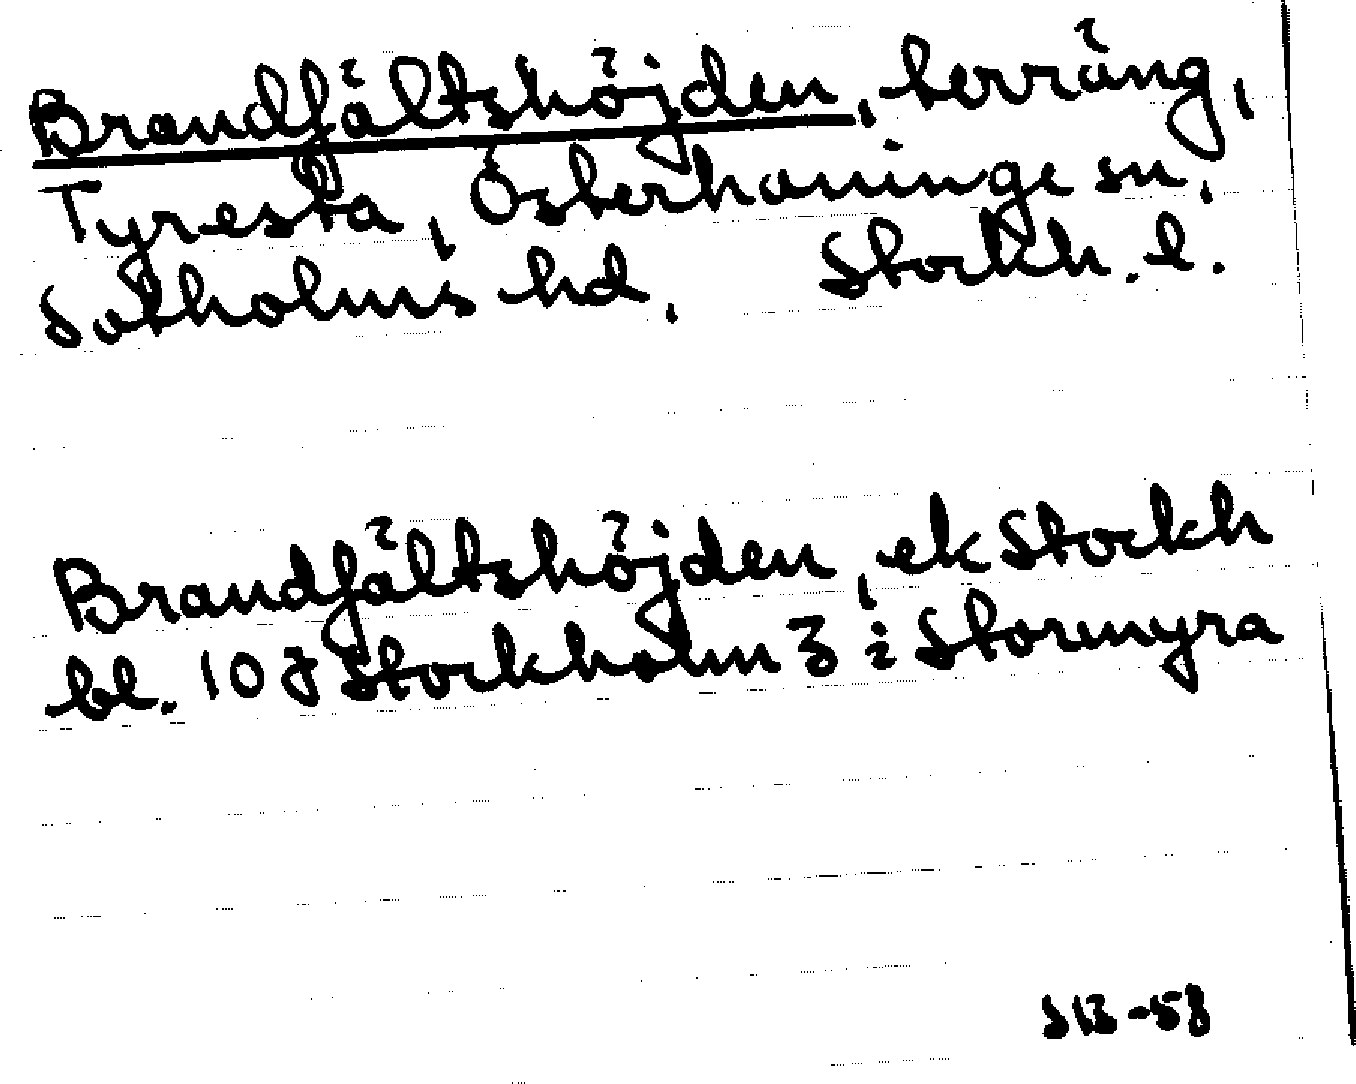 Brandfältshöjden, terräng,
Tyresta, Österhaninge sn,
Sotholms hd. Stockh. l.
Brandfältshöjden, ek Stockh
bl. 10 J Stockholm 3 i Stormyra
SB-58